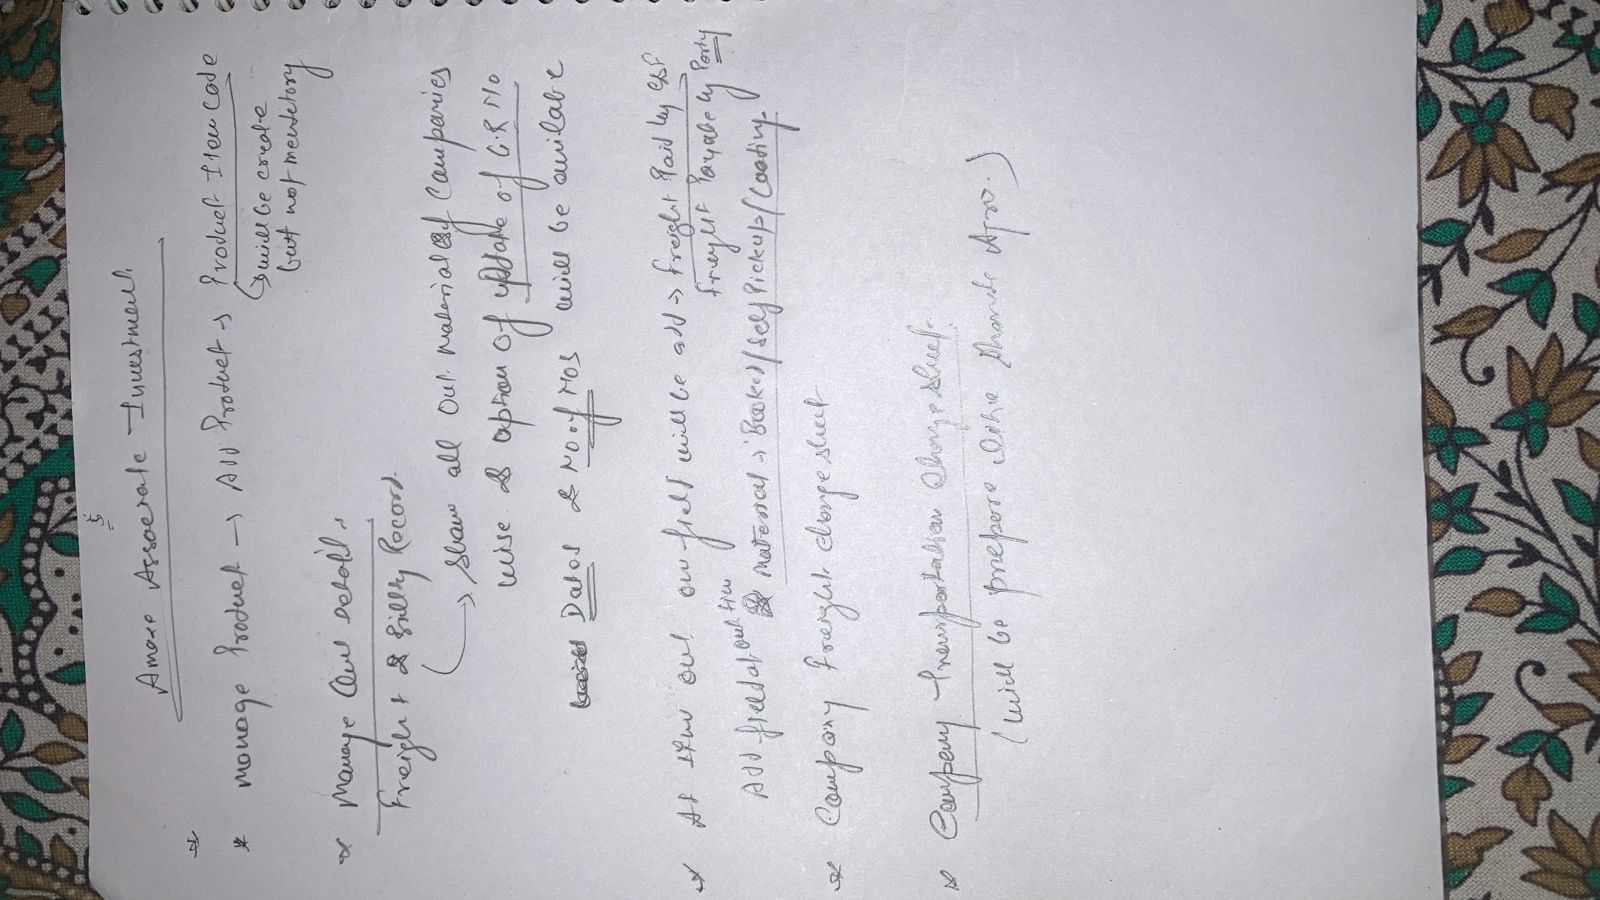 Amore Associate Investment
* Manage Product → Add Product → Product Item Code
↳ will be create
but not mendetory
* Manage Out details
Freight & Billty Record
→ Show all out material of Companies
wise & option of update of G.R No
Dates & No of Nos will be avilabe
* At item out our field will be add → Freight Paid by
Freight Payabe by Party
Add field at out time Material → Booked/Self Pickup/Coating
* Company freight charge sheet
* Company Transportation Charge sheet.
(Will be prepare like